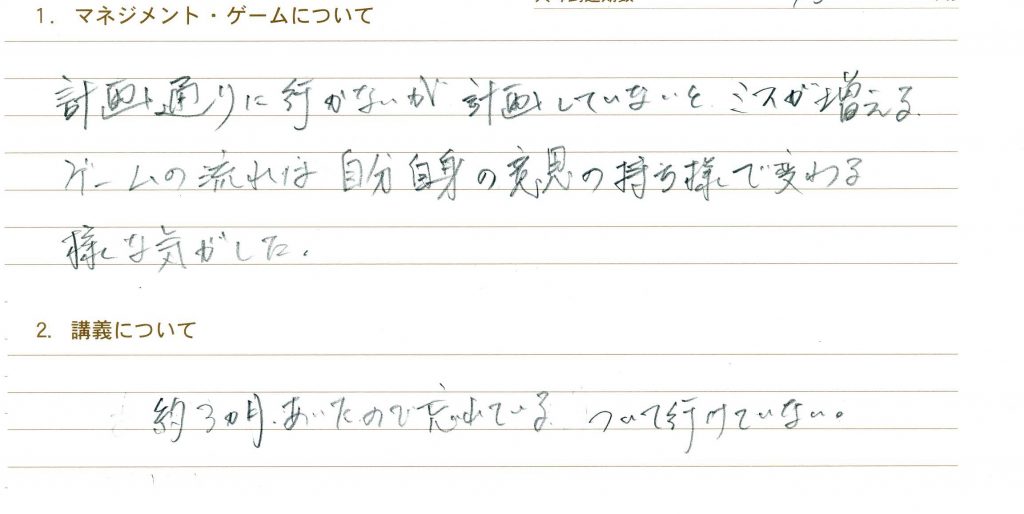 1. マネジメント・ゲームについて
計画通りに行かないが計画していないと、ミスが増える。
ゲームの流れは自分自身の意思の持ち様で変わる
様な気がした。
2. 講義について
約3カ月、あいたので忘れている ついて行けていない。